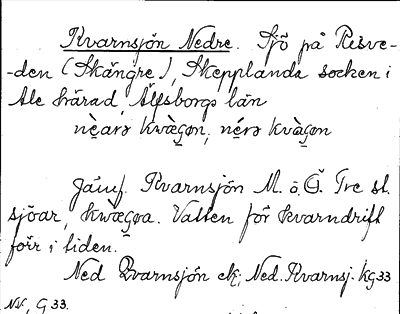 Kvarnsjön Nedre. Sjö på Risve-
-den (Skångre), Skepplanda socken i
Ale härad, Älfsborgs län
nẹ̀arə kwæ̀gọn, nẹ́rə kvàgọn
Jämf. Kvarnsjön M. o. Ö. Tre st.
sjöar, kwæ̀gọa. Vatten för kvarndrift
förr i tiden.
Ned Qvarnsjön ek; Ned. Kvarnsj. kg 33
NV., G 33.